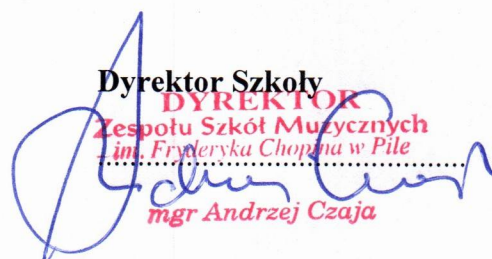 Dyrektor Szkoły
DYREKTOR
Zespołu Szkół Muzycznych
im. Fryderyka Chopina w Pile
mgr Andrzej Czaja